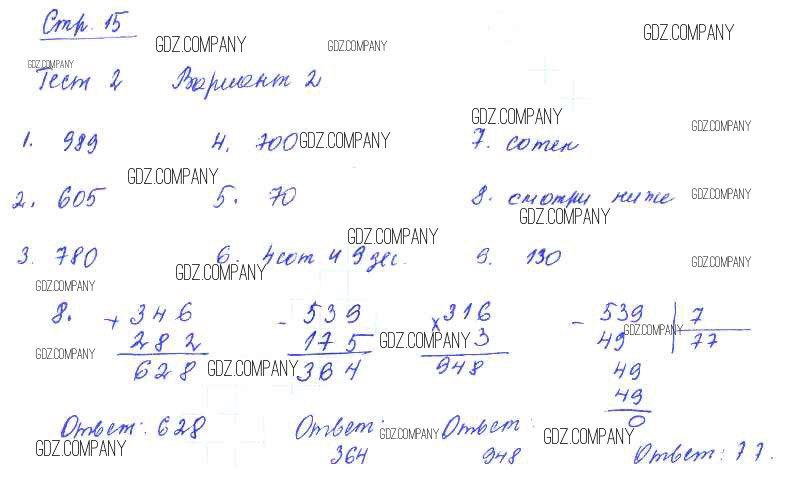 Стр. 15
GDZ.COMPANY GDZ.COMPANY GDZ.COMPANY
GDZ.COMPANY
Тест 2 Вариант 2
GDZ.COMPANY GDZ.COMPANY
1. 989 4. 700 GDZ.COMPANY 7. сотен
GDZ.COMPANY GDZ.COMPANY
2. 605 5. 70 8. смотри ниже
GDZ.COMPANY
GDZ.COMPANY
3. 780 6. 4 сот и 9 дес. 9. 130
GDZ.COMPANY GDZ.COMPANY
GDZ.COMPANY
8. + 346 - 539 x 316 - 539 7
282 175 3 49 77
GDZ.COMPANY GDZ.COMPANY
GDZ.COMPANY GDZ.COMPANY
628 364 948 49
49
0
Ответ: 628 Ответ: Ответ:
GDZ.COMPANY GDZ.COMPANY GDZ.COMPANY
364 948 Ответ: 77.